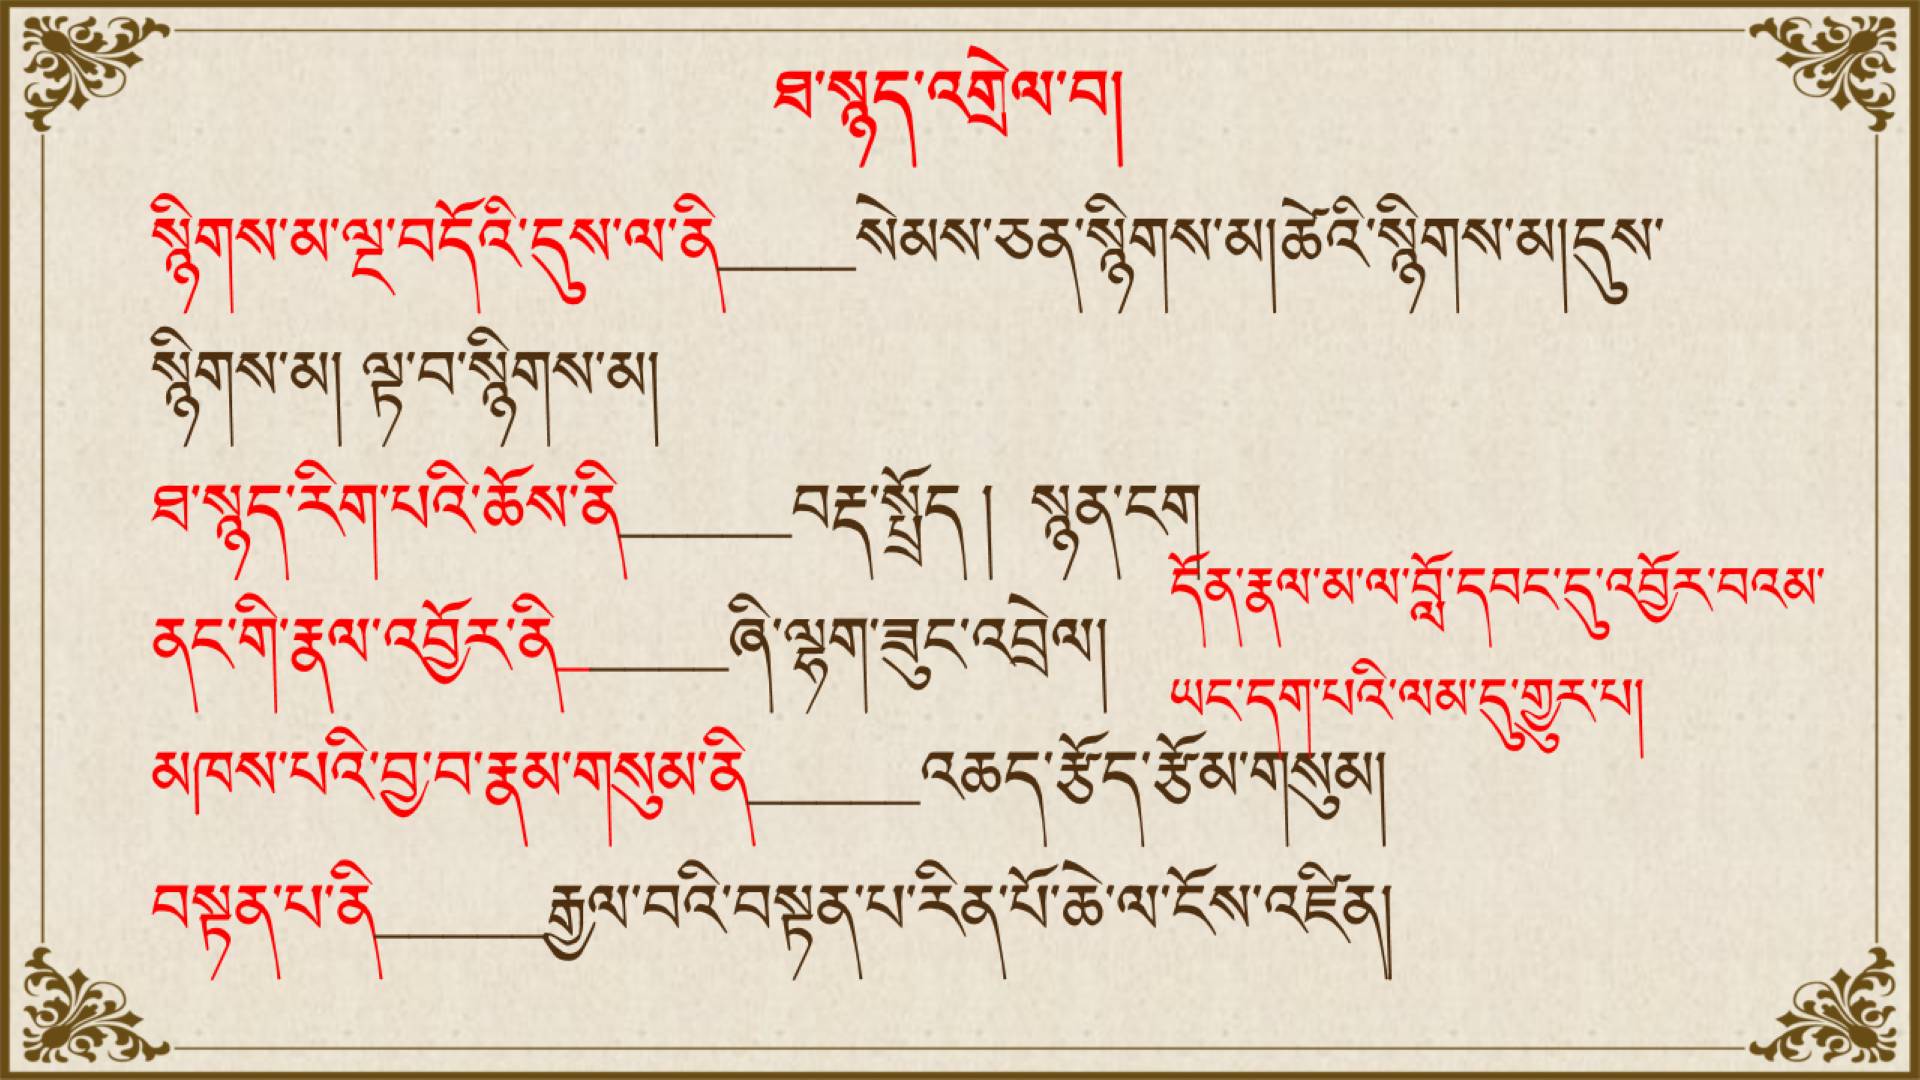 ཐ་སྙད་འགྲེལ་བ།
སྙིགས་མ་ལྔ་བདོའི་དུས་ལ་ནི_____སེམས་ཅན་སྙིགས་མ།ཚེའི་སྙིགས་མ།དུས་
སྙིགས་མ། ལྟ་བ་སྙིགས་མ།
ཐ་སྙད་རིག་པའི་ཆོས་ནི______བརྡ་སྤྲོད ། སྙན་ངག
དོན་རྣལ་མ་ལ་བློ་དབང་དུ་འབྱོར་བའམ་
ནང་གི་རྣལ་འབྱོར་ནི______ཞི་ལྷག་ཟུང་འབྲེལ།
ཡང་དག་པའི་ལམ་དུ་གྱུར་པ།
མཁས་པའི་བྱ་བ་རྣམ་གསུམ་ནི______འཆད་རྩོད་རྩོམ་གསུམ།
བསྟན་པ་ནི______རྒྱལ་བའི་བསྟན་པ་རིན་པོ་ཆེ་ལ་ངོས་འཛིན།